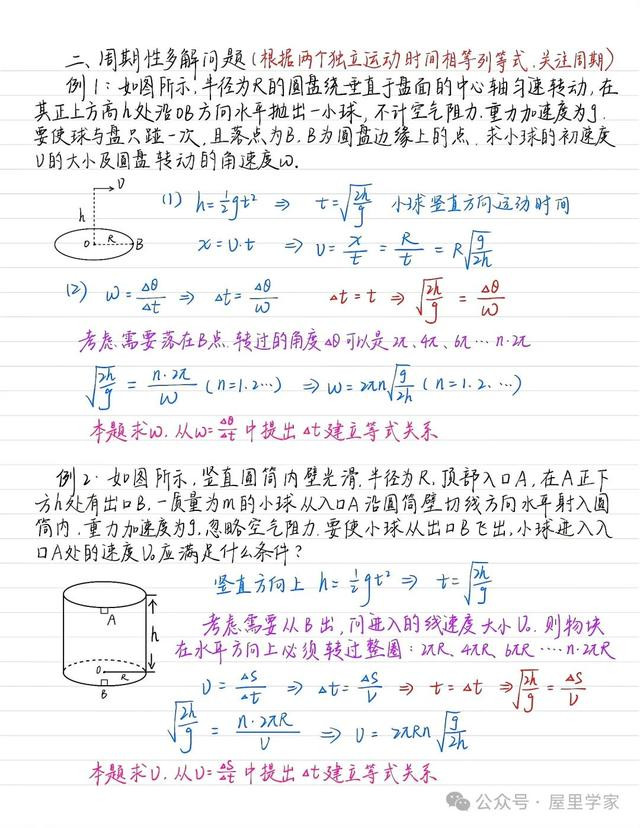 二、周期性多解问题(根据两个独立运动时间相等列等式.关注周期)
例1:如图所示,半径为R的圆盘绕垂直于盘面的中心轴匀速转动,在
其正上方高h处沿OB方向水平抛出一小球,不计空气阻力.重力加速度为g.
要使球与盘只碰一次,且落点为B,B为圆盘边缘上的点.求小球的初速度
υ的大小及圆盘转动的角速度ω.
υ
h
O R B
(1) h=½gt² ⇒ t=√(2h/g) 小球竖直方向运动时间
x=υ·t ⇒ υ=x/t=R/t=R√(g/2h)
(2) ω=Δθ/Δt ⇒ Δt=Δθ/ω Δt=t ⇒ √(2h/g)=Δθ/ω
考虑需要落在B点.转过的角度Δθ可以是2π、4π、6π…n·2π
√(2h/g)=n·2π/ω (n=1.2…) ⇒ ω=2πn√(g/2h) (n=1.2.…)
本题求ω.从ω=Δθ/Δt中提出Δt建立等式关系
例2:如图所示,竖直圆筒内壁光滑.半径为R,顶部入口A,在A正下
方h处有出口B,一质量为m的小球从入口A沿圆筒壁切线方向水平射入圆
筒内.重力加速度为g,忽略空气阻力.要使小球从出口B飞出,小球进入入
口A处的速度υ₀应满足什么条件?
A
h
O R
B
竖直方向上 h=½gt² ⇒ t=√(2h/g)
考虑需要从B出,问进入的线速度大小υ₀.则物块
在水平方向上必须转过整圈:2πR、4πR、6πR…n·2πR
υ=ΔS/Δt ⇒ Δt=ΔS/υ ⇒ t=Δt ⇒ √(2h/g)=ΔS/υ
√(2h/g)=n·2πR/υ ⇒ υ=2πRn√(g/2h)
本题求υ.从υ=ΔS/Δt中提出Δt建立等式关系
公众号·屋里学家